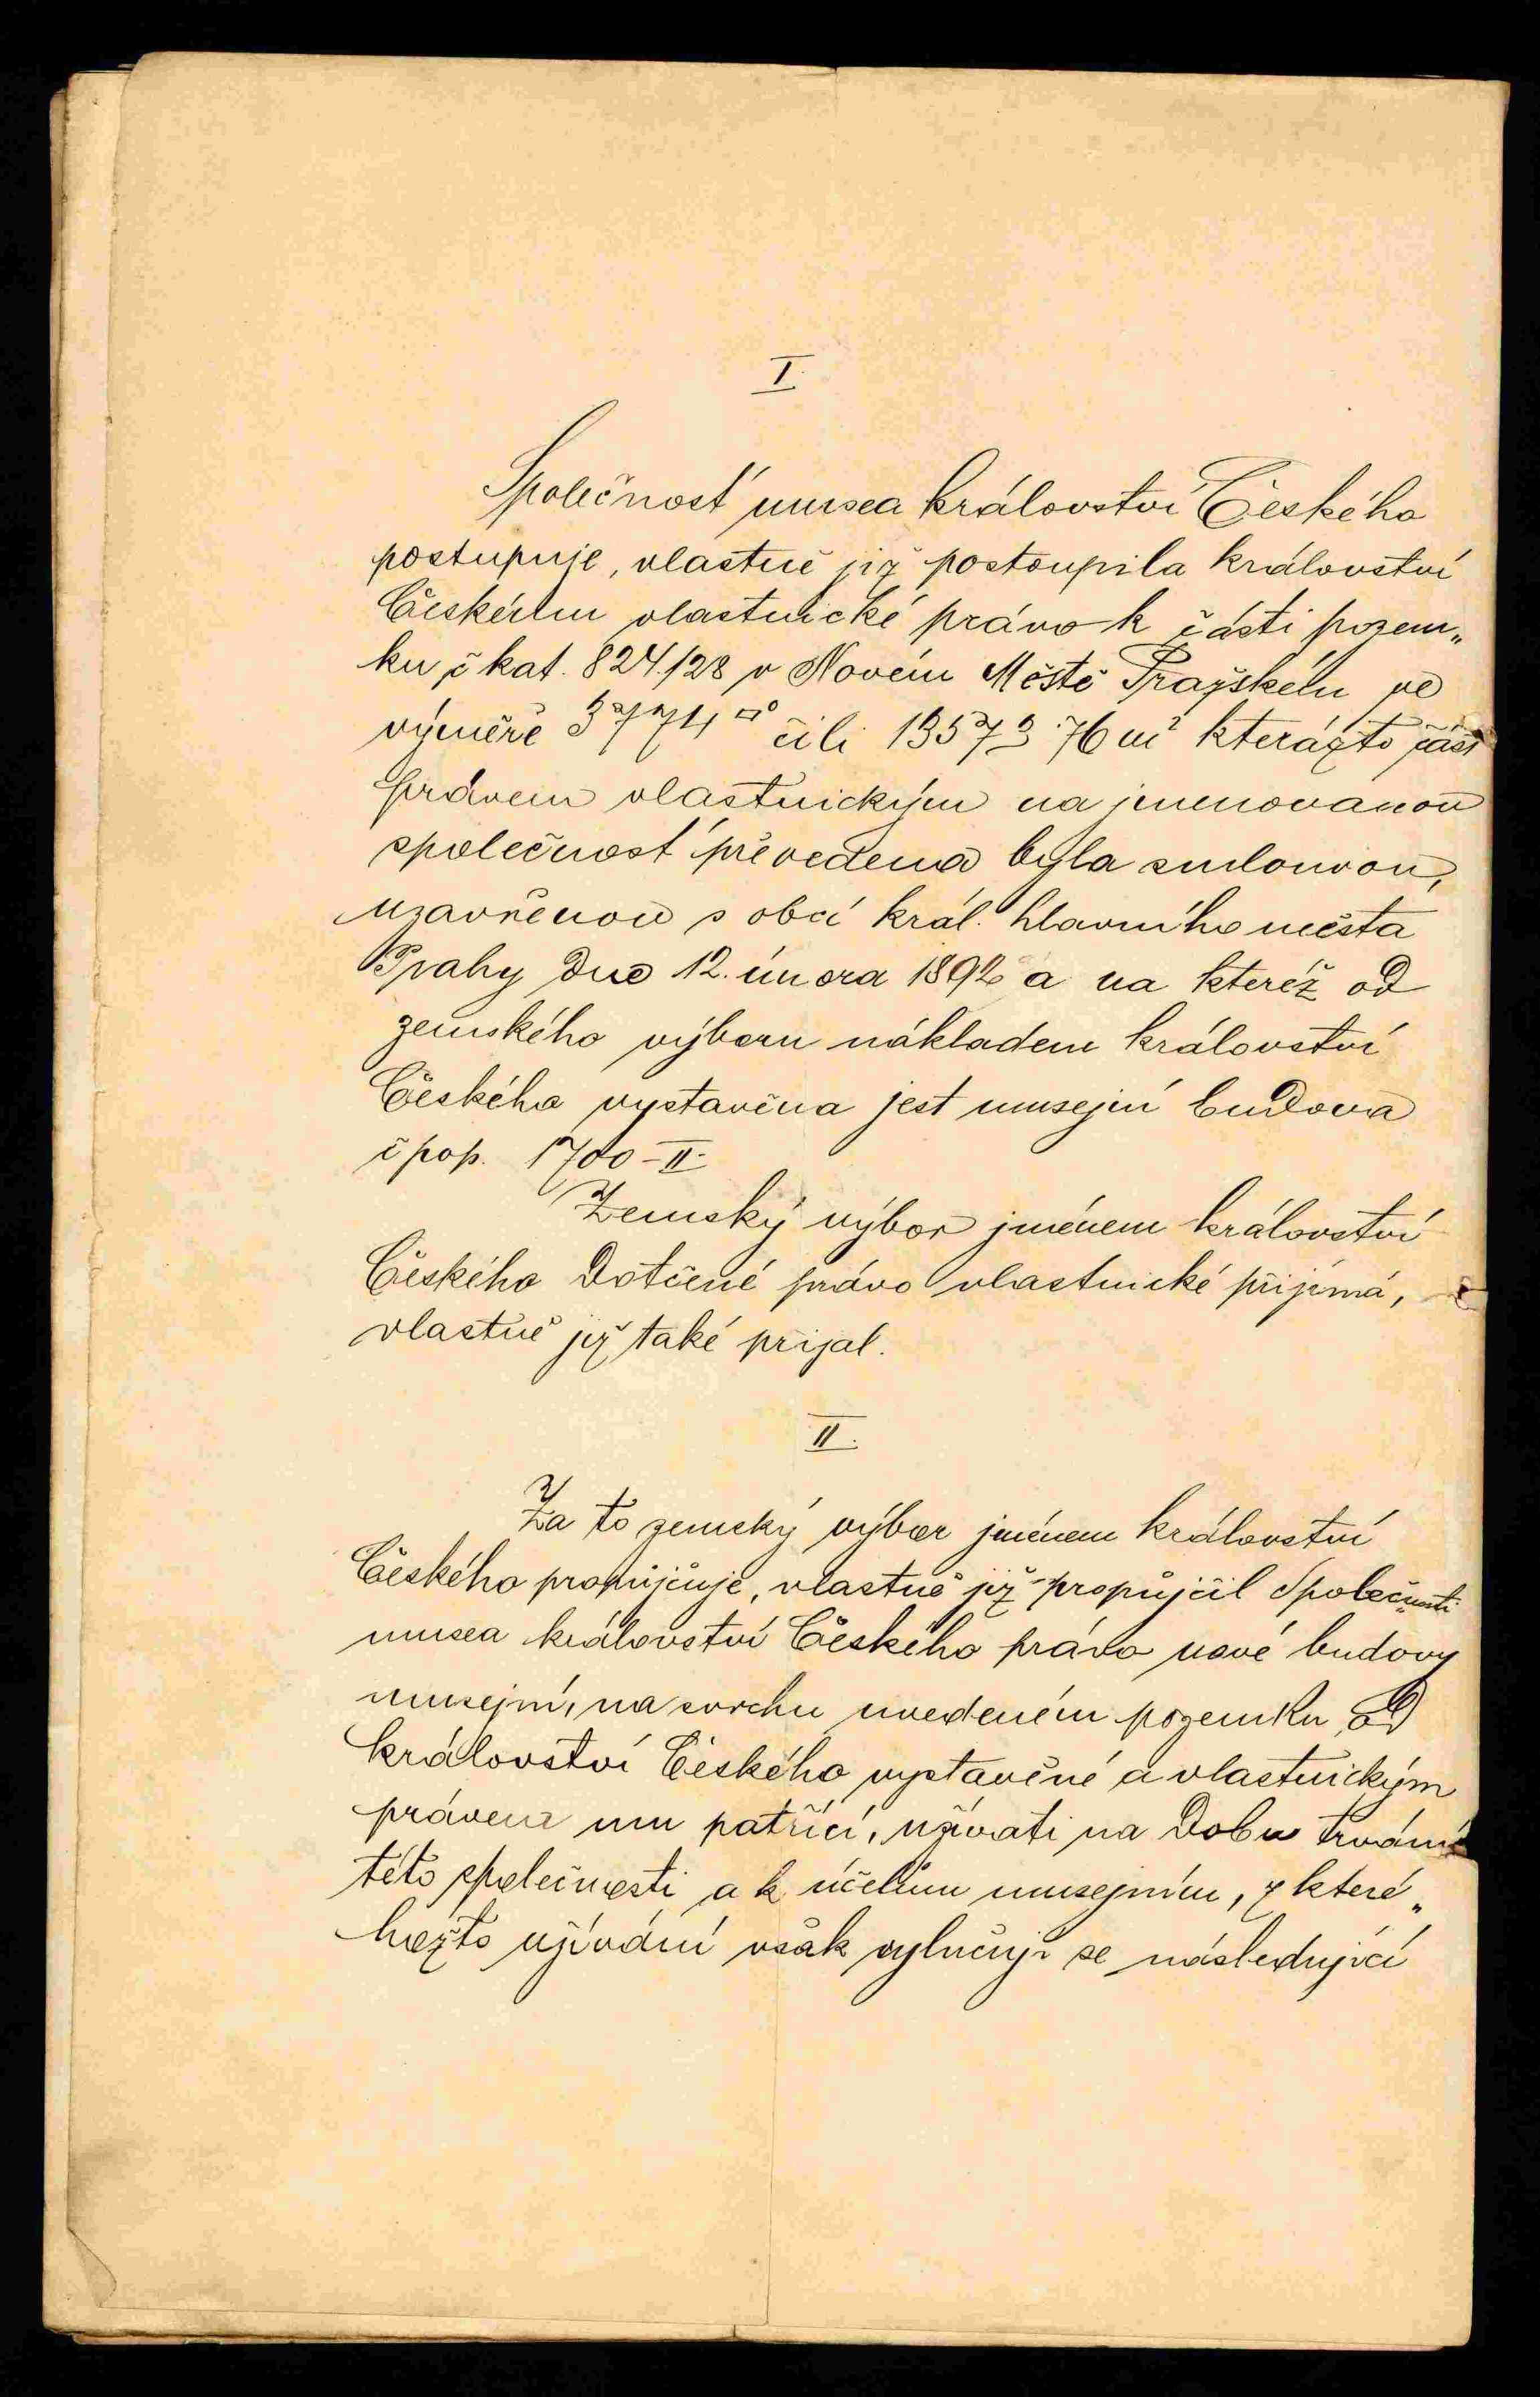 I.
Společnosť musea království Českého
postupuje, vlastně již postoupila království
Českému vlastnické právo k části pozem„
ku č kat. 824/128 v Novém Městě Pražském ve
výměře 3774□° čili 13573·76 m² kterážto část
právem vlastnickým na jmenovanou
společnosť převedena byla smlouvou,
uzavřenou s obcí král. hlavního města
Prahy dne 12. února 1892 a na kteréž od
zemského výboru nákladem království
Českého vystavěna jest musejní budova
č pop. 1700-II.
Zemský výbor jménem království
Českého dotčené právo vlastnické přijímá,
vlastně již také přijal.
II.
Za to zemský výbor jménem království
Českého propůjčuje, vlastně již propůjčil Společnosti
musea království Českého právo nové budovy
musejní, na svrchu uvedeném pozemku od
království Českého vystavěné a vlastnickým
právem mu patřící, užívati na dobu trvání
této společnosti a k účelům musejním, z které„
hožto užívání však vylučují se následující